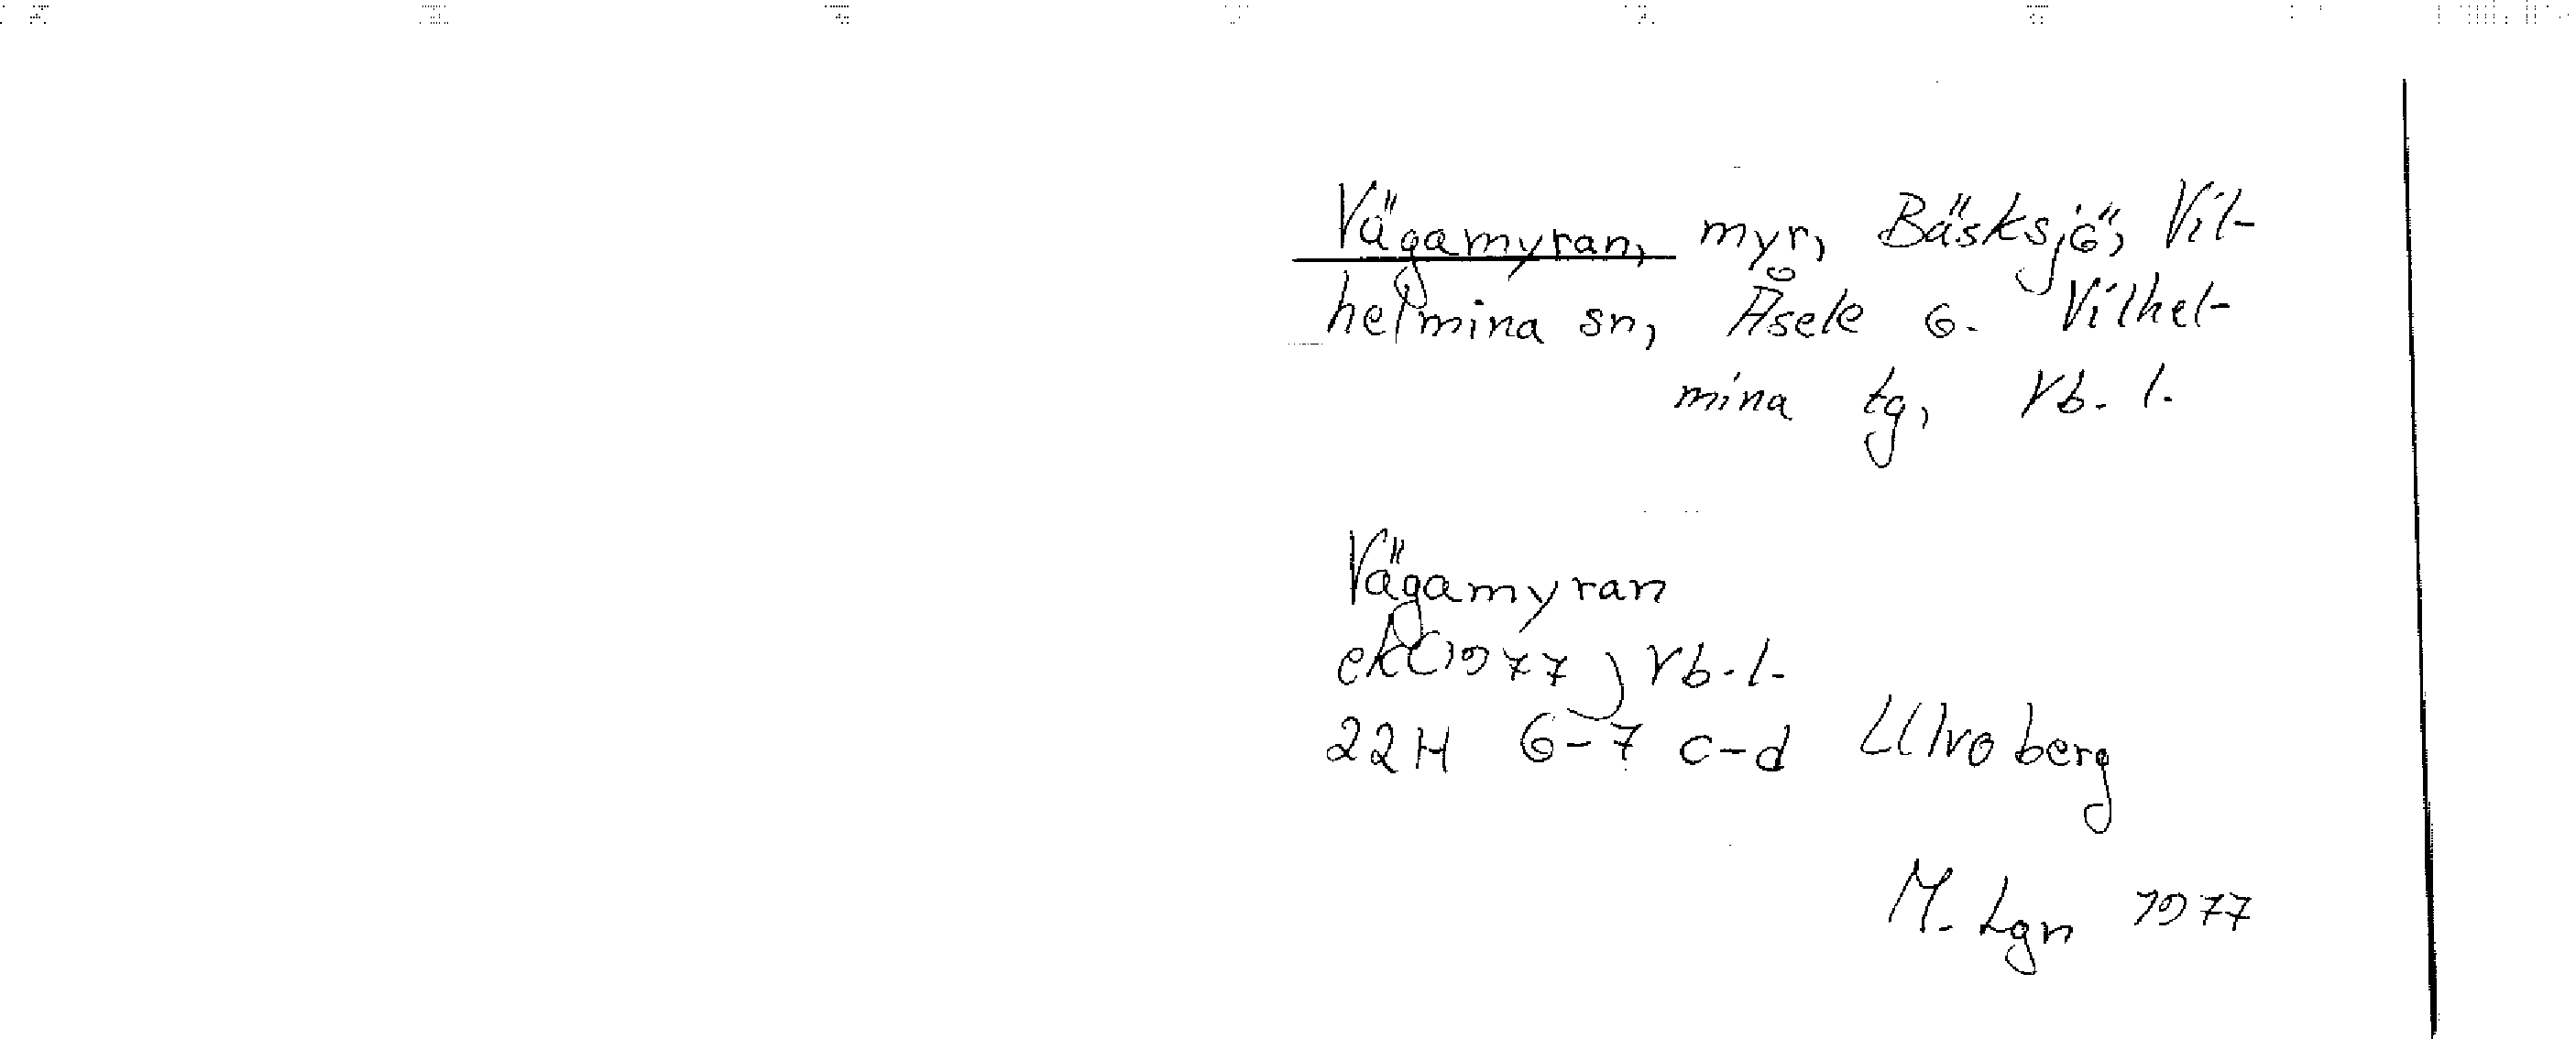 Vägamyran, myr, Bäsksjö, Vil-
helmina sn, Åsele o. Vilhel-
mina tg, Vb. l.
Vägamyran
ek (1977) Vb. l.
22H 6-7 c-d Ulvoberg
M. Lgn 1977